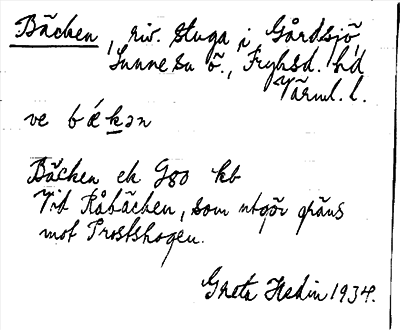 Bäcken, riv. stuga i Gårdsjö,
Sunne sn ö., Fryksd. hd
Värml. l.
ve bǽkən
Bäcken ek G80 kb
Vid Råbäcken, som utgör gräns
mot Prostskogen.
Greta Hedin 1934.